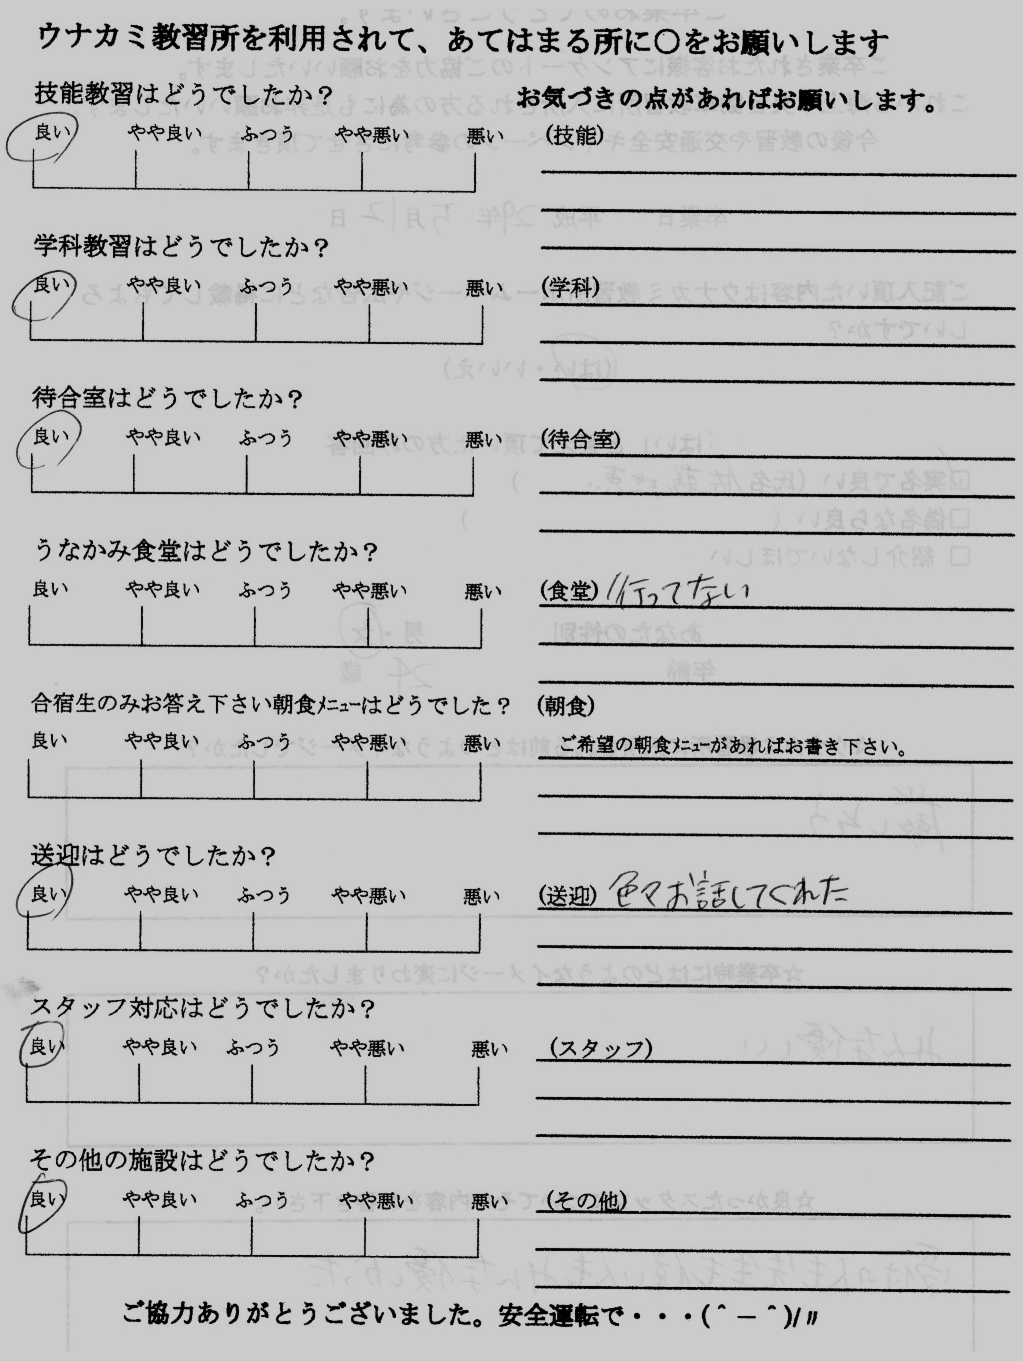 ウナカミ教習所を利用されて、あてはまる所に〇をお願いします
技能教習はどうでしたか?
お気づきの点があればお願いします。
良い やや良い ふつう やや悪い 悪い (技能)
学科教習はどうでしたか?
良い やや良い ふつう やや悪い 悪い (学科)
待合室はどうでしたか?
良い やや良い ふつう やや悪い 悪い (待合室)
うなかみ食堂はどうでしたか?
良い やや良い ふつう やや悪い 悪い (食堂) 行ってない
合宿生のみお答え下さい朝食メニューはどうでした? (朝食)
良い やや良い ふつう やや悪い 悪い ご希望の朝食メニューがあればお書き下さい。
送迎はどうでしたか?
良い やや良い ふつう やや悪い 悪い (送迎) 色々お話してくれた
スタッフ対応はどうでしたか?
良い やや良い ふつう やや悪い 悪い (スタッフ)
その他の施設はどうでしたか?
良い やや良い ふつう やや悪い 悪い (その他)
ご協力ありがとうございました。安全運転で・・・(＾－＾)/〃